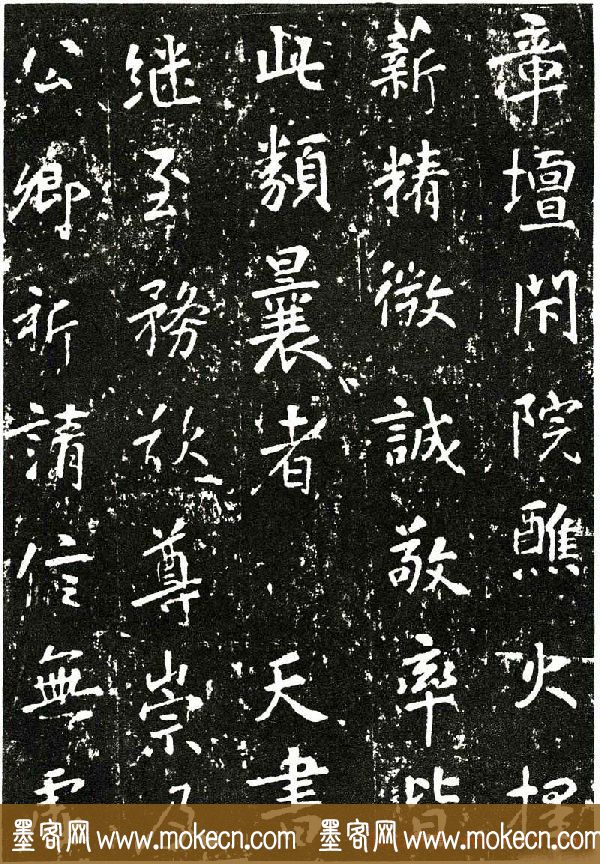 章壇閑院醮火
薪精微誠敬率皆
此類曩者 天書
継至務欲尊崇
公卿祈請信無
墨客网 www.mokecn.com 墨客网 www.mokecn.com